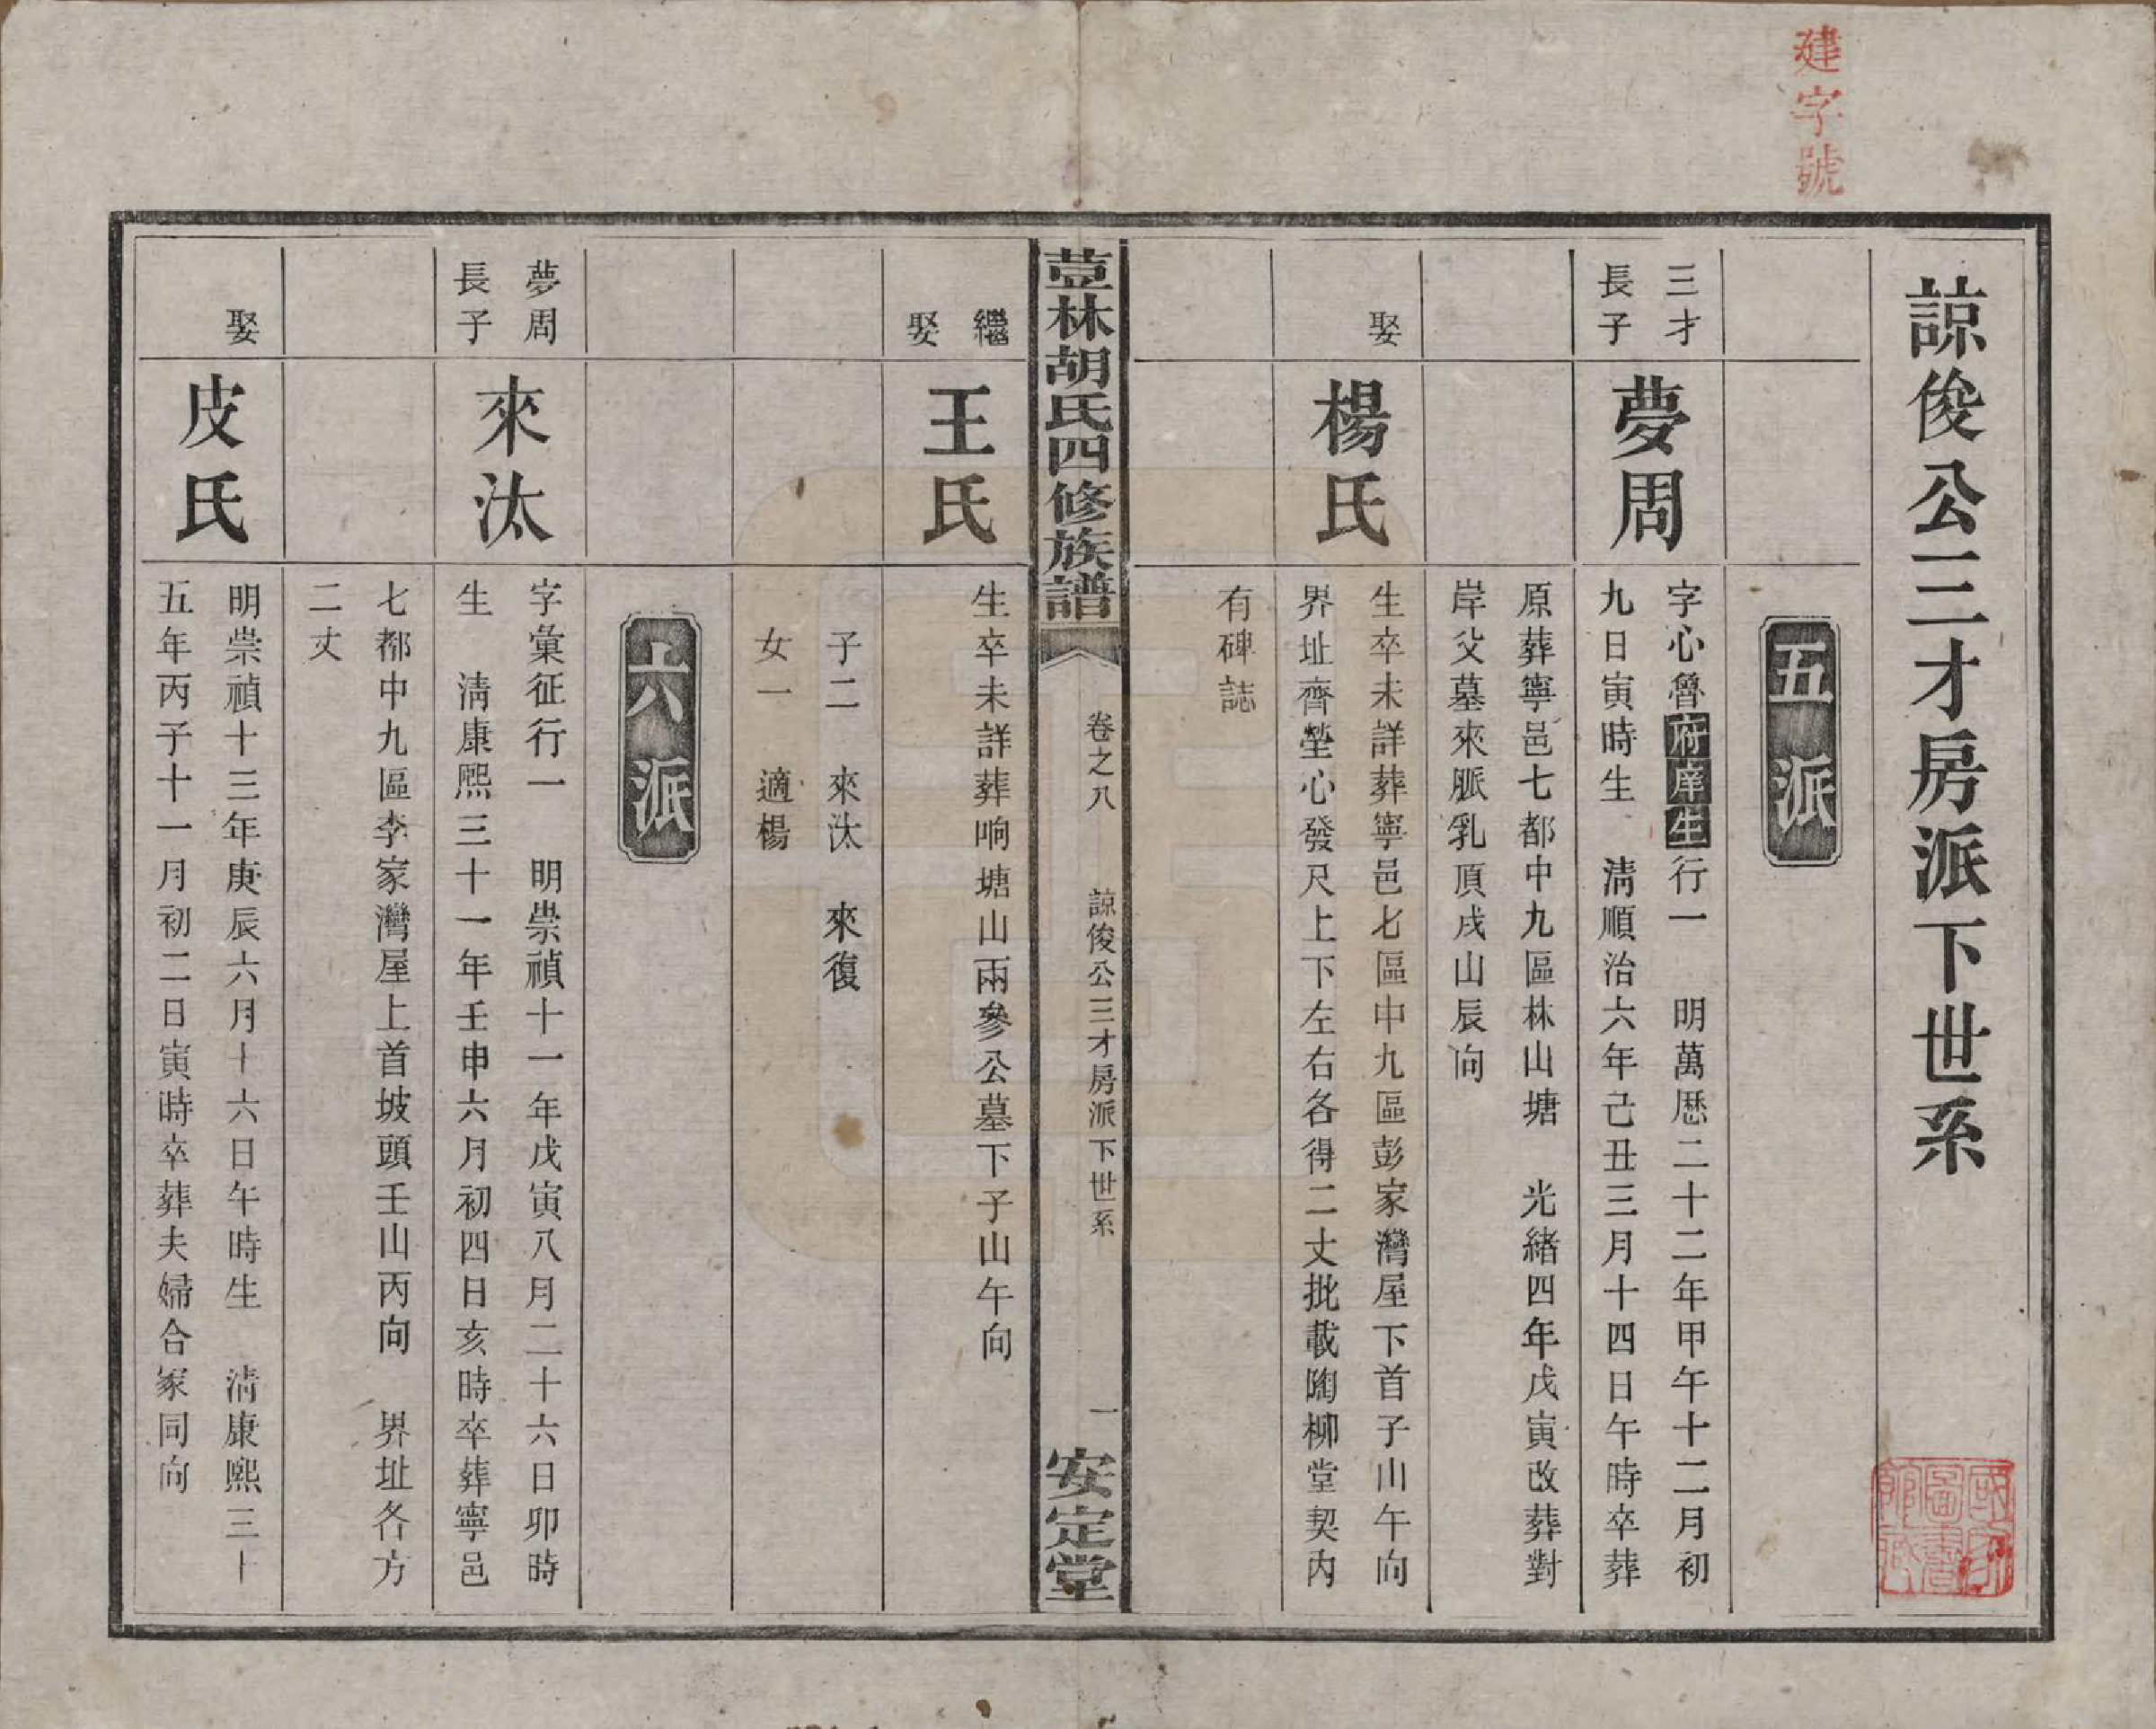 建字號
諒俊公三才房派下世系
五派
三才
長子
夢周
字心魯府庠生行一 明萬厯二十二年甲午十二月初
九日寅時生 清順治六年己丑三月十四日午時卒葬
原葬寧邑七都中九區林山塘 光緒四年戊寅改葬對
岸父墓來脈乳頂戌山辰向
娶
楊氏
生卒未詳葬寧邑七區中九區彭家灣屋下首子山午向
界址齊塋心發尺上下左右各得二丈批載陶柳堂契內
有碑誌
荳林胡氏四修族譜
卷之八
諒俊公三才房派下世系
一
安定堂
繼
娶
王氏
生卒未詳葬响塘山兩參公墓下子山午向
子二 來汰 來復
女一 適楊
六派
夢周
長子
來汰
字彙征行一 明崇禎十一年戊寅八月二十六日卯時
生 清康熙三十一年壬申六月初四日亥時卒葬寧邑
七都中九區李家灣屋上首坡頭壬山丙向 界址各方
二丈
娶
皮氏
明崇禎十三年庚辰六月十六日午時生 清康熙三十
五年丙子十一月初二日寅時卒葬夫婦合冢同向